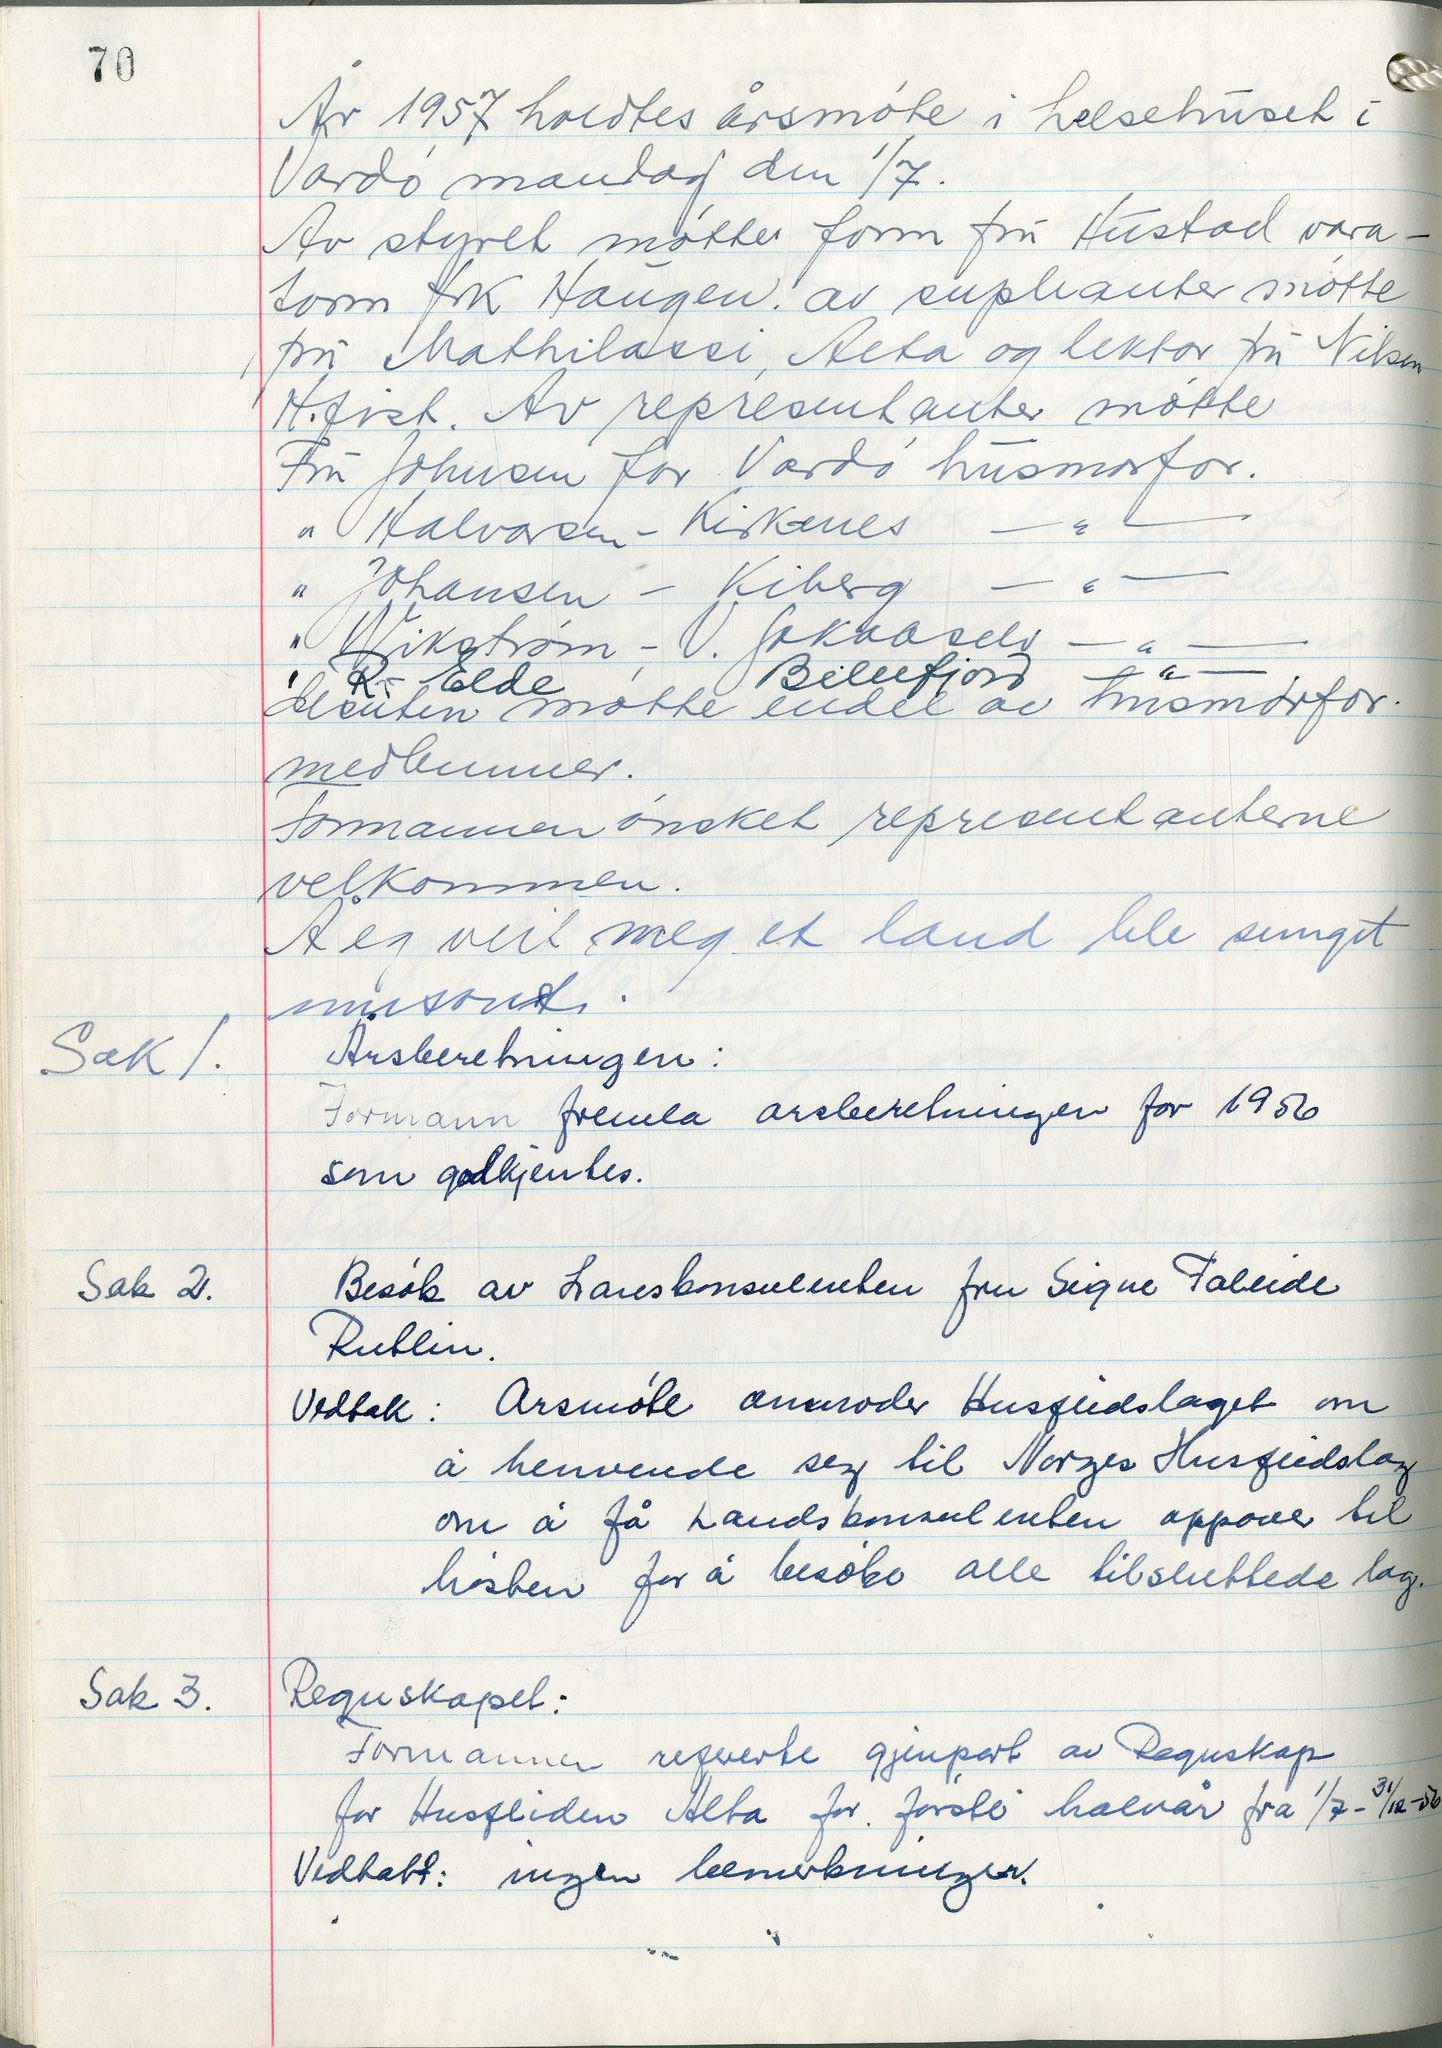 70
År 1957 holdtes årsmøte i helsehuset i
Vardø mandag den 1/7.
Av styret møtte form fru Hustad vara-
form frk Haugen. av suplianter møtte
fru Mathilassi, Alta og lektor fru Nilsen
H.fest. Av representanter møtte
Fru Johnsen for Vardø husmorfor.
" Halvorsen - Kirkenes — " —
" Johansen - Kiberg — " —
" Wikstrøm - V. Jakobselv — " —
" R. Elde Billefjord — " —
desuten møtte endel av husmorfor.
medlemmer.
Formannen ønsket representanterne
velkommen.
Å eg veit meg et land ble sunget
unisont.
Sak 1. Årsberetningen:
Formann fremla årsberetningen for 1956
som godkjentes.
Sak 2. Besøk av Landskonsulenten fru Signe Faleide
Rutlin.
Vedtak: Årsmøte anmoder Husflidslaget om
å henvende seg til Norges Husflidslag
om å få Landskonsulenten oppover til
høsten for å besøke alle tilsluttede lag.
Sak 3. Regnskapet:
Formannen refererte gjenpart av Regnskap
for Husfliden Alta for første halvår fra 1/7 - 31/12 - 56
Vedtatt: ingen bemerkninger.